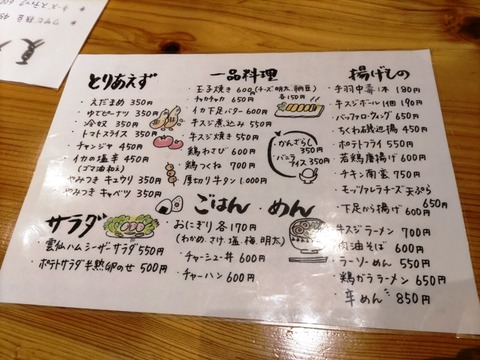 とりあえず
・えだまめ 350円
・ゆでピーナツ 350円
・冷奴 350円
・トマトスライス 350円
・チャンジャ 450円
・イカの塩辛 450円
(ゴマ油和え)
・やみつきキュウリ 350円
・やみつきキャベツ 350円
サラダ
・雲仙ハムシーザーサラダ 550円
・ポテトサラダ半熟卵のせ 500円
一品料理
・玉子焼き 600円(チーズ、明太、納豆)
各150円
・チャカチャカ 650円
・イカ下足バター 650円
・牛スジ煮込み 550円
・牛スジ焼き 550円
・鶏わさび 600円
・鶏つくね 700円
・厚切り牛タン 1,000円
・かんざらし
350円
・バニラ
アイス 350円
ごはん・めん
・おにぎり各170円
(わかめ、マヨ塩、梅、明太)
・チャーシュー丼 600円
・チャーハン 600円
揚げもの
・手羽中1本 180円
・牛スジボール1個 190円
・バッファローウィング 650円
・ちくわ磯辺揚 450円
・ポテトフライ 550円
・若鶏唐揚げ 600円
・チキン南蛮 750円
・モッツァレラチーズ天ぷら
650円
・下足から揚げ 600円
・牛スジラーメン 700円
・肉油そば 600円
・ラーソーめん 550円
・鶏ガララーメン 650円
・辛めん 850円